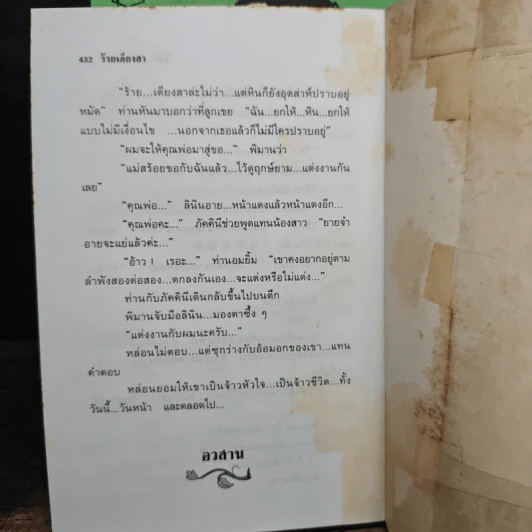 432 ร้ายเดียงสา
“ร้าย...เดียงสาล่ะไม่ว่า...แต่หินก็ยังอุตส่าห์ปราบอยู่
หมัด” ท่านหันมาบอกว่าที่ลูกเขย “ฉัน...ยกให้...หิน...ยกให้
แบบไม่มีเงื่อนไข ...นอกจากเธอแล้วก็ไม่มีใครปราบอยู่”
“ผมจะให้คุณพ่อมาสู่ขอ...” พิมานว่า
“แม่สร้อยขอกับฉันแล้ว...ไว้ดูฤกษ์ยาม...แต่งงานกัน
เลย”
“คุณพ่อ...” ลินินอาย...หน้าแดงแล้วหน้าแดงอีก...
“คุณพ่อคะ...” ภัคคินีช่วยพูดแทนน้องสาว “ยายจ๋า
อายจะแย่แล้วค่ะ...”
“อ้าว ! เรอะ...” ท่านอมยิ้ม “เขาคงอยากอยู่ตาม
ลำพังสองต่อสอง...ตกลงกันเอง...จะแต่งหรือไม่แต่ง...”
ท่านกับภัคคินีเดินกลับขึ้นไปบนตึก
พิมานจับมือลินิน...มองตาซึ้ง ๆ
“แต่งงานกับผมนะครับ...”
หล่อนไม่ตอบ...แต่ซุกร่างกับอ้อมอกของเขา...แทน
คำตอบ
หล่อนยอมให้เขาเป็นจ้าวหัวใจ...เป็นจ้าวชีวิต...ทั้ง
วันนี้...วันหน้า และตลอดไป...
อวสาน